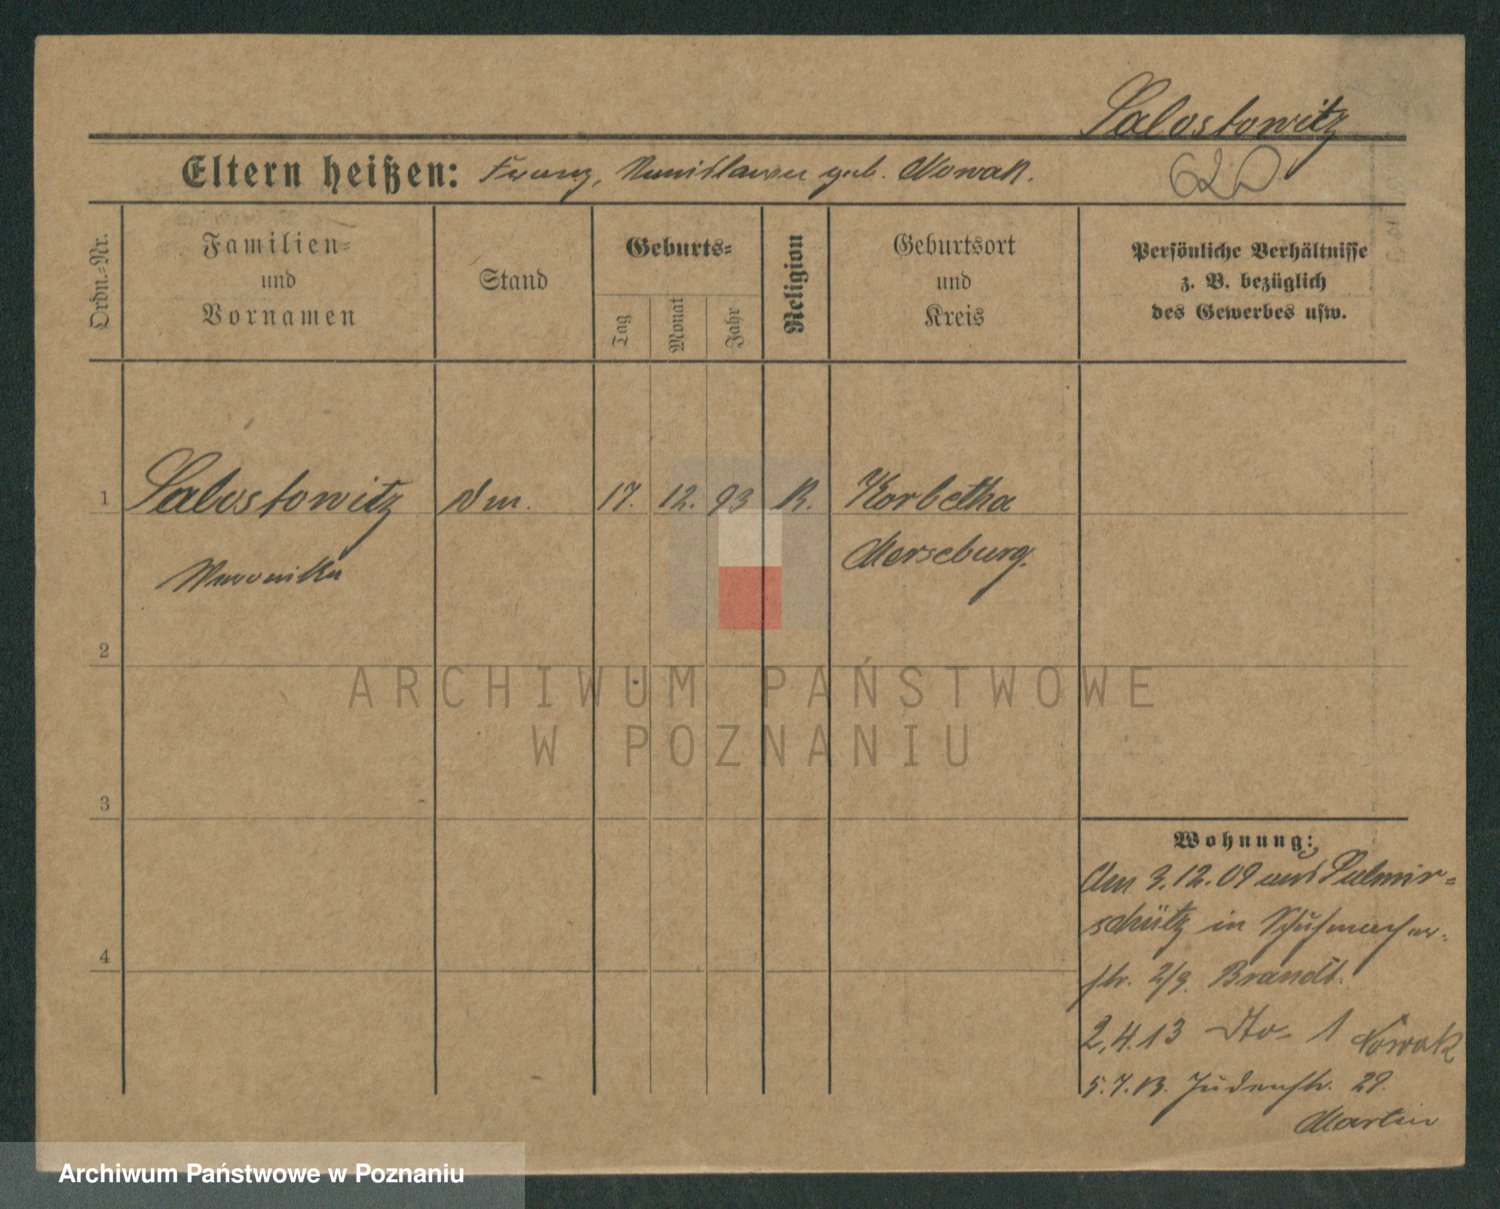 Salostowitz
620
Eltern heißen: Franz, Stanislawa geb. Nowak.
Ordn.-Nr.
Familien-
und
Vornamen
Stand
Geburts-
Tag
Monat
Jahr
Religion
Geburtsort
und
Kreis
Persönliche Verhältnisse
z. B. bezüglich
des Gewerbes usw.
1 Salostowitz 17. 12. 93 K. Korbetha
Veronika Merseburg.
2
ARCHIWUM PAŃSTWOWE
W POZNANIU
3
Wohnung:
Am 3.12.09 aus
schütz in Schuhmacher-
str. 2/3. Brandt.
2.4.13 dto 1 Nowak
5.7.13. Judenstr. 29.
Martin
4
Archiwum Państwowe w Poznaniu